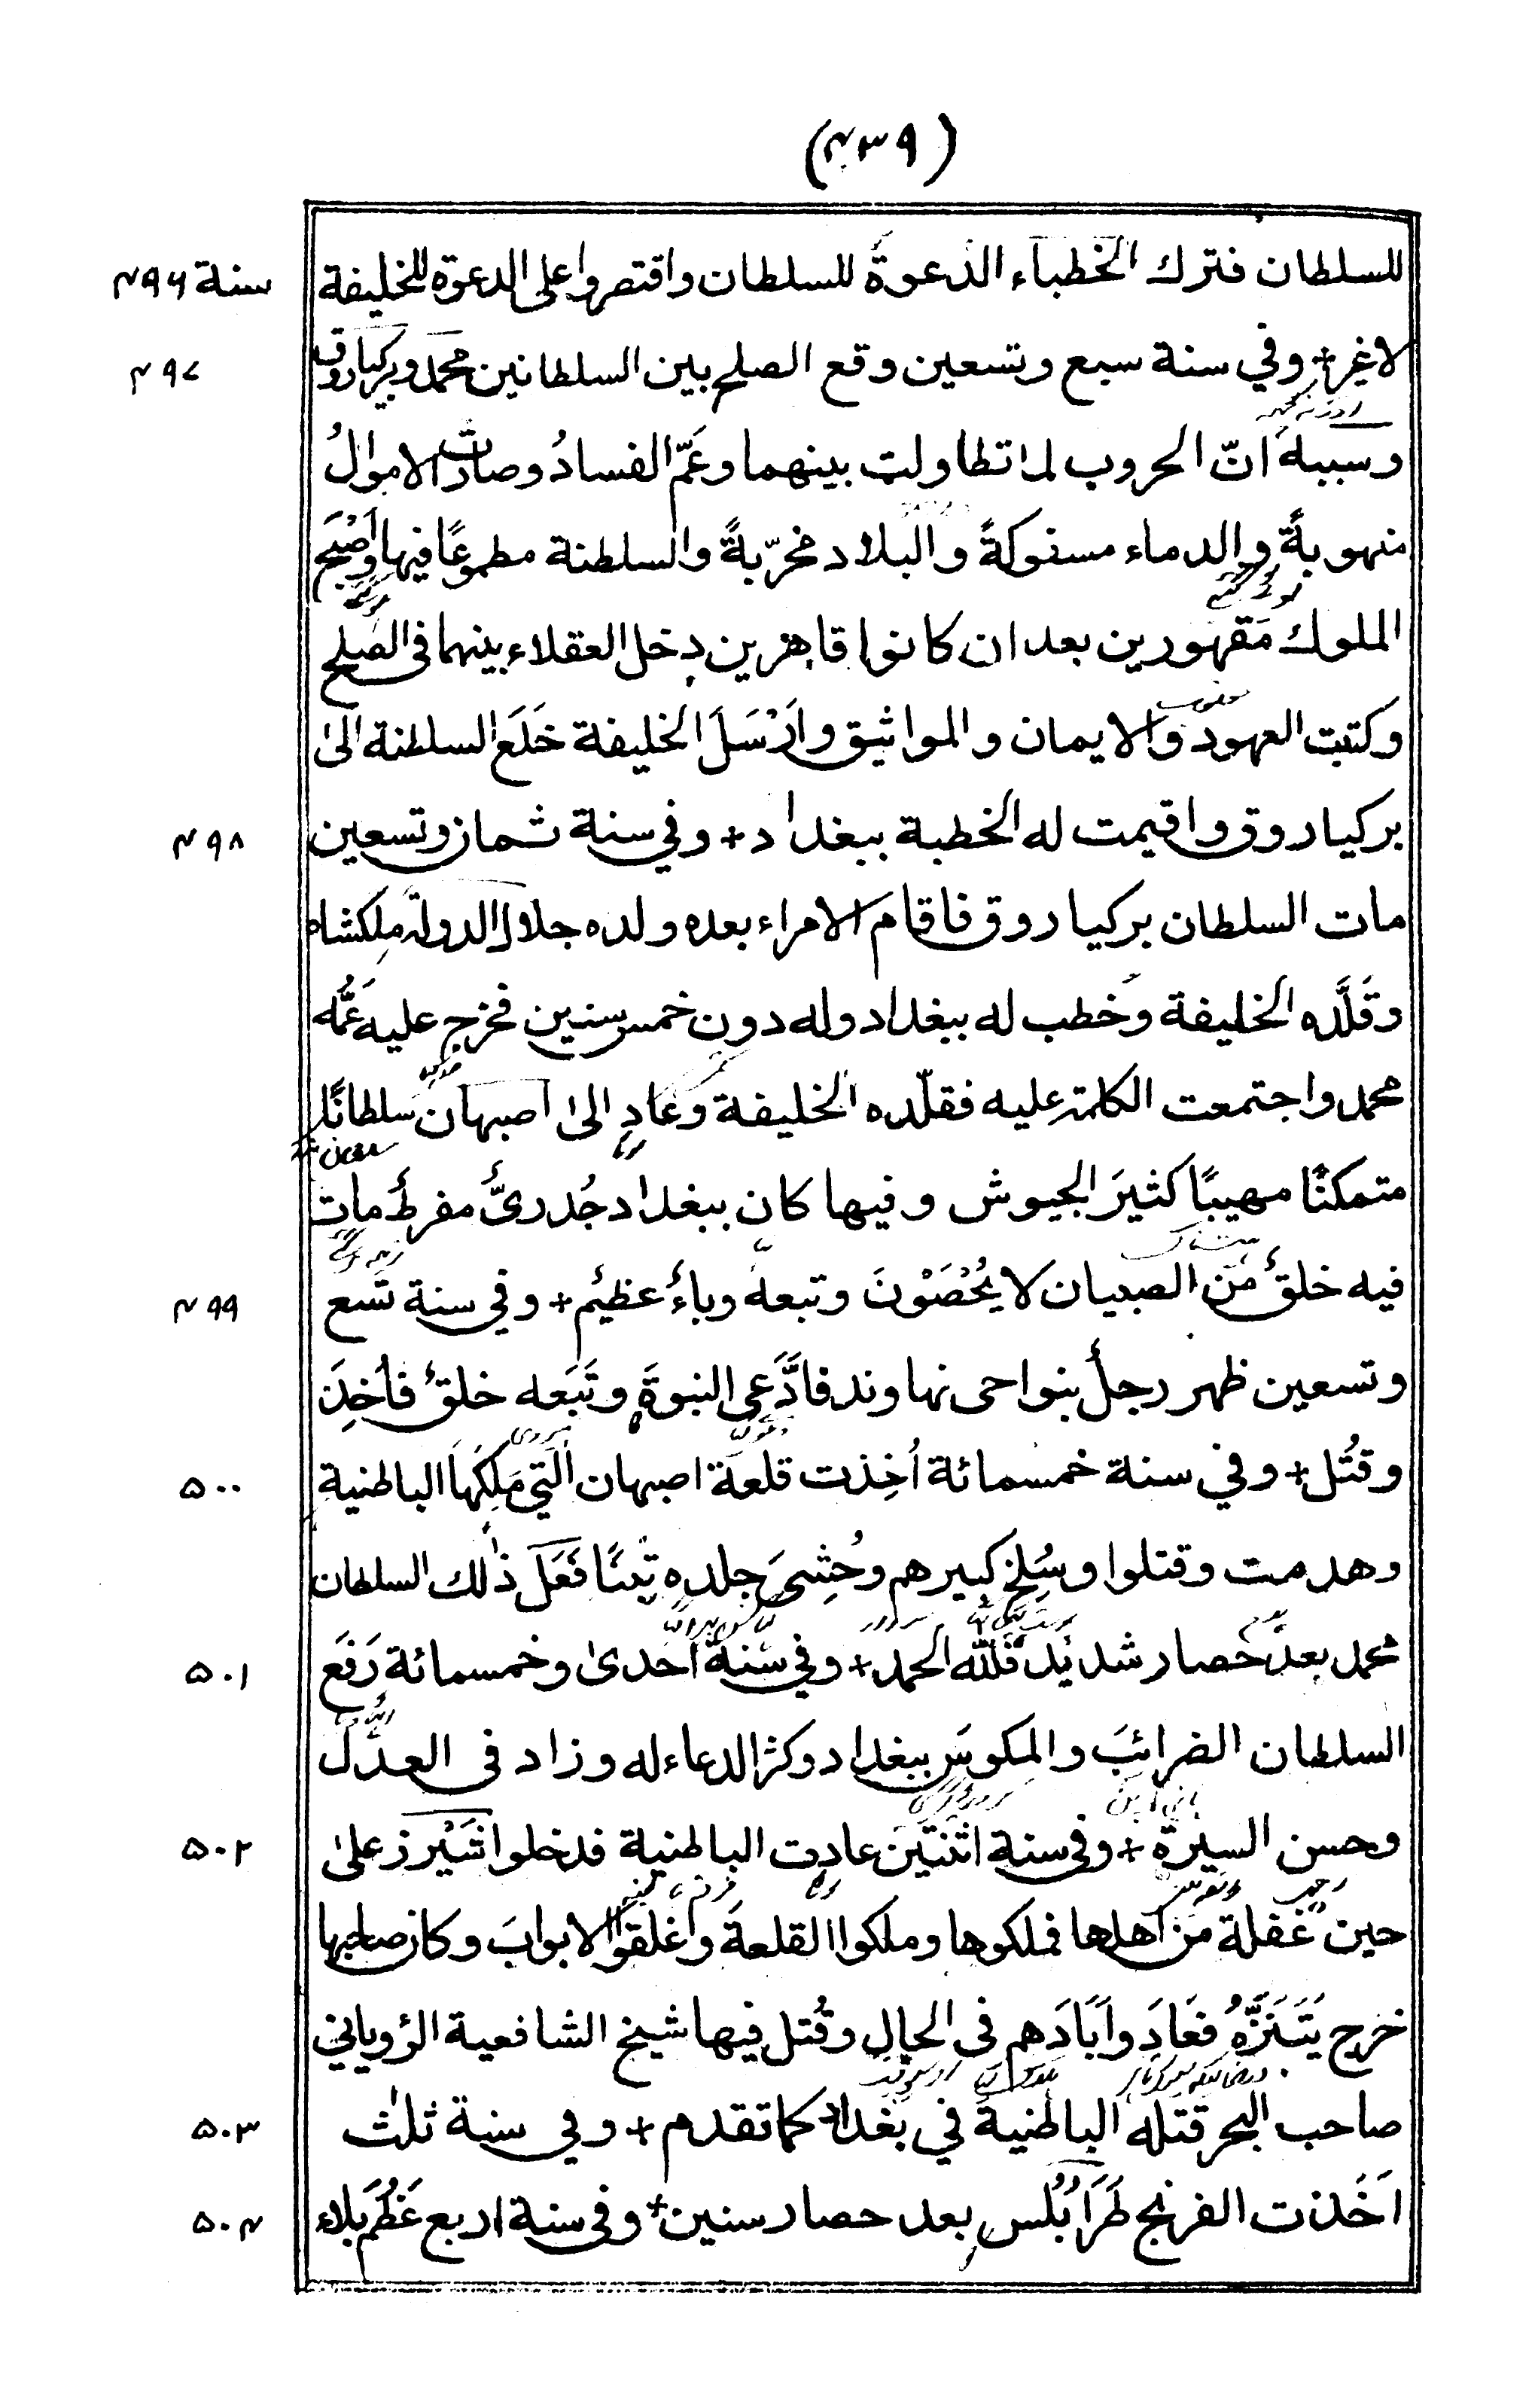 (۴۳۹)
للسلطان فترك الخطباء الدعوة للسلطان واقتصروا على الدعوة للخليفة
سنة ۴۹۶
لا غير + وفي سنة سبع وتسعين وقع الصلح بين السلطانين محمد وبركياروق
۴۹۷
وسببه انّ الحروب لما تطاولت بينهما وعَمّ الفسادُ وصارت الاموالُ
منهوبةً والدماء مسفوكةً والبلاد مخرّبةً والسلطنة مطموعًا فيها وأصْبَحَ
الملوك مَقهورين بعد ان كانوا قاهرين دخل العقلاء بينهما فى الصُلح
وكتبت العهود والايمان والمواثيق وأرْسَلَ الخليفة خَلَعَ السلطنة الىٰ
بركياروق واقيمت له الخطبة ببغداد + وفي سنة ثمان وتسعين
۴۹۸
مات السلطان بركياروق فاقام الامراء بعده ولده جلال الدولة ملكشاه
وقَلَّده الخليفة وخُطب له ببغداد وله دون خمس سنين فخرج عليه عَمُّه
محمد واجتمعت الكلمة عليه فقلّده الخليفة وعاد الىٰ اصبهان سلطانًا
متمكنًا مهيبًا كثيرَ الجيوش وفيها كان ببغداد جُدرىٌّ مفرطٌ مات
فيه خلقٌ من الصبيان لا يُحْصَوْنَ وتبعه وباءٌ عظيم + وفي سنة تسع
۴۹۹
وتسعين ظهر رجلٌ بنواحى نهاوند فادَّعى النبوة وتَبَعه خلقٌ فأُخِذَ
وقُتل + وفي سنة خمسمائة أُخِذت قلعة اصبهان الّتي مَلِكَها الباطنية
۵۰۰
وهدمت وقتلوا وسُلخ كبيرهم وحُشِىَ جلده تِبْنًا فَعَلَ ذٰلك السلطان
محمد بعد حصار شديد فللّٰه الحمد + وفي سنة احدىٰ وخمسمائة رَفَعَ
۵۰۱
السلطان الضرائبَ والمكوسَ ببغداد وكثر الدعاء له وزاد فى العدل
وحسن السيرة + وفى سنة اثنتين عادت الباطنية فدخلوا شَيْرز علىٰ
۵۰۲
حين غفلة من اهلها فملكوها وملكوا القلعة واغلقوا الابوابَ وكان صاحبها
خرج يَتَنَزَّهُ فَعَادَ وأبَادَهم فى الحال وقُتل فيها شيخ الشافعية الرؤياني
صاحب البحر قتله الباطنية في بغداد كما تقدم + وفي سنة ثلٰث
۵۰۳
اَخَذت الفرنج طَرَابُلُس بعد حصار سنين + وفى سنة اربع عَظُمَ بلاء
۵۰۴